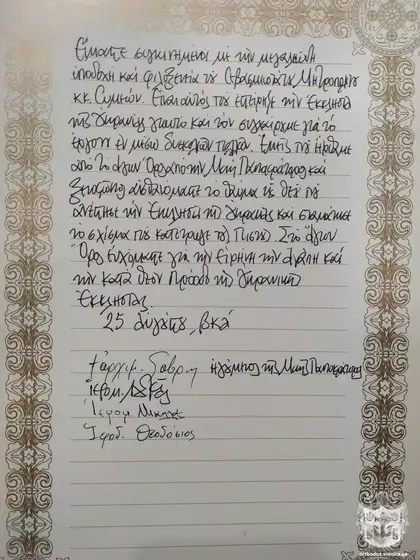 Είμαστε συγκινημένοι με την μεγαλειώδη
υποδοχή και φιλοξενία του Σεβασμιοτάτου Μητροπολίτου
κκ. Συμεών. Είναι αυτός που την Εκκλησία
της Ουκρανίας γιαυτό και τον συγχαίρουμε για το
έργο του εν μέσω δυσκολιών πολλών. Εμείς που ήρθαμε
από το άγιον Όρος από την Μονή Παντοκράτορος και
Ξενοφώντος το θαύμα του Θεού που
την Εκκλησία της Ουκρανίας και σταμάτησε
το σχίσμα που τους Πιστούς. Στο άγιον
Όρος ευχόμαστε για την ειρήνη την αγάπη και
την κατά Θεόν πρόοδο της Ουκρανικής
Εκκλησίας.
25 Αυγούστου, βκά
†αρχιμ. Γαβριήλ ηγούμενος της Μονής Παντοκράτορος
Ιερομ.
Ιερομ.
Ιεροδ. Θεοδόσιος
orthodox.vinnica.ua